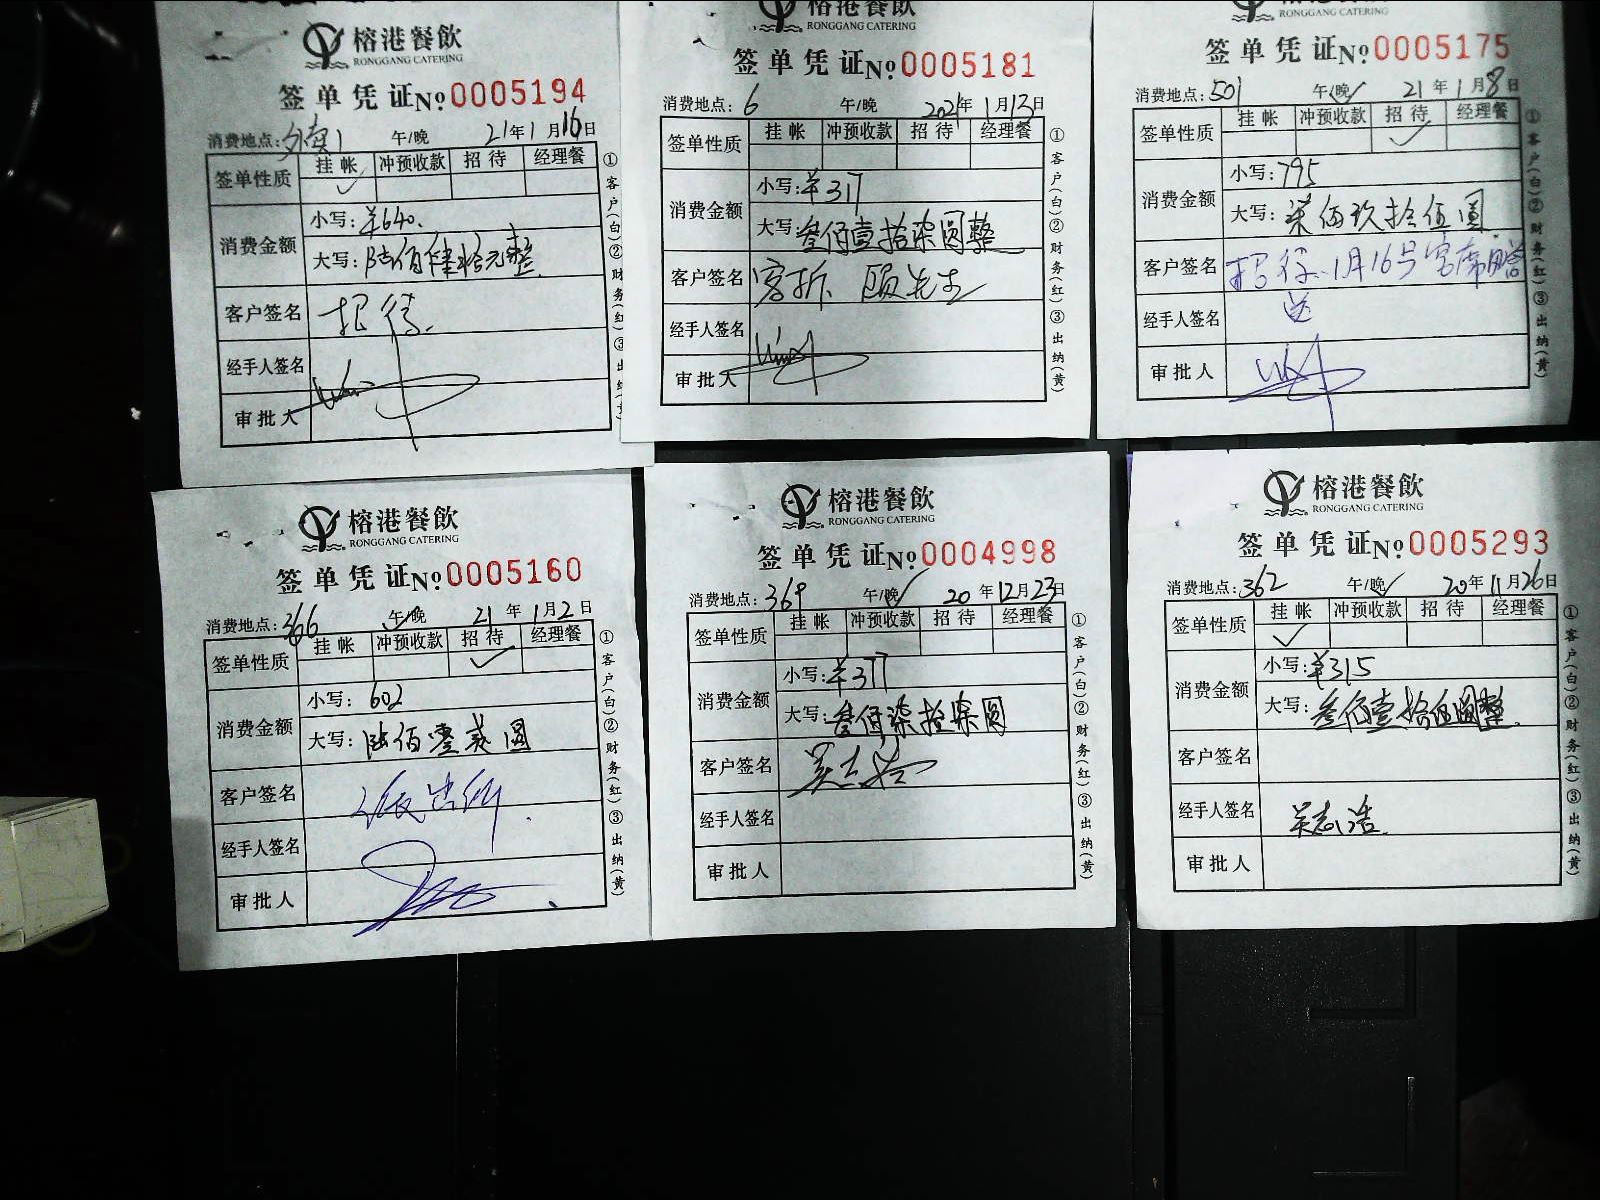 榕港餐飲
RONGGANG CATERING
签单凭证 №0005194
消费地点: 1 午/晚 21年1月16日
签单性质 挂帐 冲预收款 招待 经理餐
✓
消费金额 小写:¥640.
大写:陆佰肆拾元整
客户签名 招待.
经手人签名
审批人
①客户(白)②财务(红)③出纳(黄)
榕港餐飲
RONGGANG CATERING
签单凭证 №0005181
消费地点: 6 午/晚 2021年1月13日
签单性质 挂帐 冲预收款 招待 经理餐
消费金额 小写:¥317
大写:叁佰壹拾柒圆整
客户签名 客折 顾先生
经手人签名
审批人
①客户(白)②财务(红)③出纳(黄)
榕港餐飲
RONGGANG CATERING
签单凭证 №0005175
消费地点: 501 午/晚✓ 21年1月8日
签单性质 挂帐 冲预收款 招待 经理餐
✓
消费金额 小写:795
大写:柒佰玖拾伍圆
客户签名 招待.1月16号客席赠
经手人签名 送
审批人
①客户(白)②财务(红)③出纳(黄)
榕港餐飲
RONGGANG CATERING
签单凭证 №0005160
消费地点: 366 午/晚 21年1月2日
签单性质 挂帐 冲预收款 招待 经理餐
✓
消费金额 小写:602
大写:陆佰零贰圆
客户签名
经手人签名
审批人
①客户(白)②财务(红)③出纳(黄)
榕港餐飲
RONGGANG CATERING
签单凭证 №0004998
消费地点: 369 午/晚✓ 20年12月23日
签单性质 挂帐 冲预收款 招待 经理餐
消费金额 小写:¥377
大写:叁佰柒拾柒圆
客户签名 吴志浩
经手人签名
审批人
①客户(白)②财务(红)③出纳(黄)
榕港餐飲
RONGGANG CATERING
签单凭证 №0005293
消费地点: 362 午/晚✓ 20年11月26日
签单性质 挂帐 冲预收款 招待 经理餐
✓
消费金额 小写:¥315
大写:叁佰壹拾伍圆整.
客户签名
经手人签名 吴志浩.
审批人
①客户(白)②财务(红)③出纳(黄)